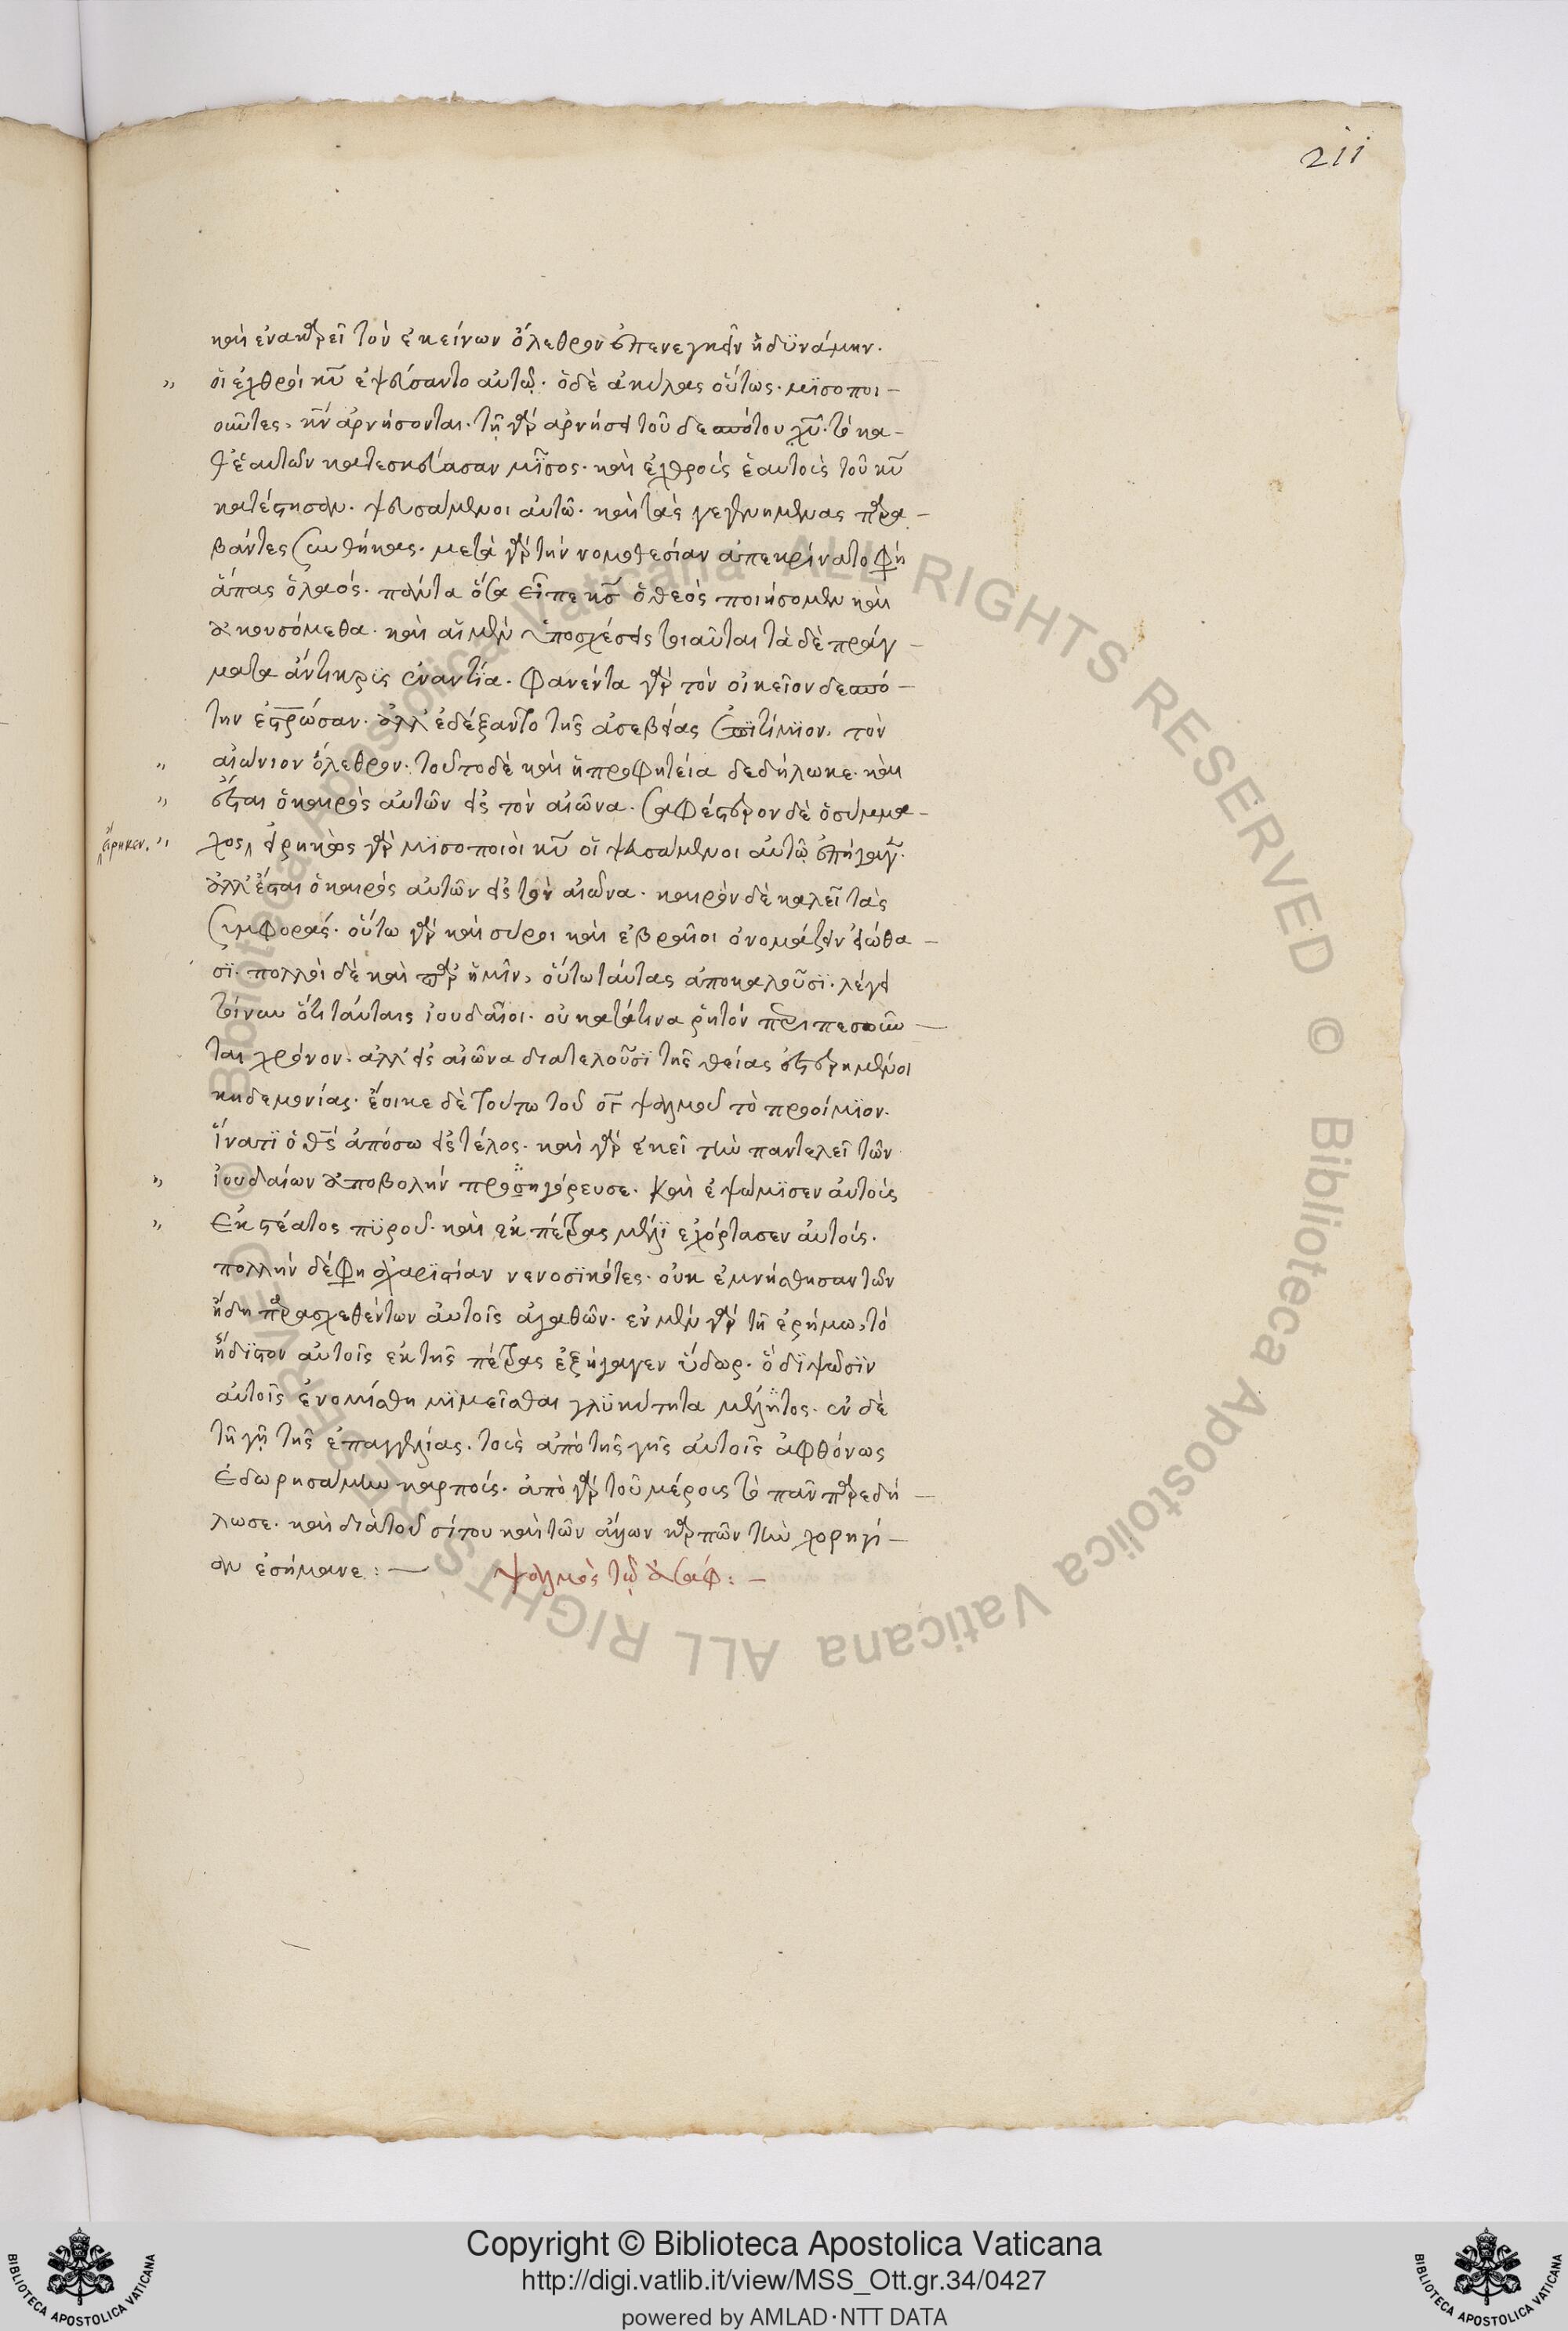 211
καὶ ἐν ἀκαρεῖ τὸν ἐκείνων ὄλεθρον ἐπενεγκεῖν ἠδϋνάμην.
" οἱ ἐχθροὶ κυ ἐψεύσαντο αὐτῷ. ὁ δὲ ἀκύλας οὕτως. μϊσοποι-
οῦντες, κν ἀρνήσονται. τῇ γὰρ ἀρνήσει τοῦ δεσπότου χυ. τὸ κα-
θ' ἑαυτῶν κατεσκεύασαν μῖσος. καὶ ἐχθροὺς ἑαυτοὺς τοῦ κυ
κατέστησαν. ψευσάμενοι αὐτῶ. καὶ τὰς γεγενημένας παρα-
βάντες συνθήκας. μετὰ γὰρ τὴν νομοθεσίαν ἀπεκρίνατο φη
ἅπας ὁ λαός. πάντα ὅσα εἶπε κς ὁ θεὸς ποιήσομεν καὶ
ἀκουσόμεθα. καὶ αἱ μὲν ὑποσχέσεις τοιαῦται τὰ δὲ πράγ-
ματα ἄντικρϊς ἐναντία. φανέντα γὰρ τὸν οἰκεῖον δεσπό-
την ἐστρωσαν. ἀλλ' ἐδέξαντο τῆς ἀσεβείας ἐπϊτίμϊον, τὸν
" αἰώνιον ὄλεθρον. τοῦτο δὲ καὶ ἡ προφητεία δεδήλωκε. καὶ
" ἔσται ὁ καιρὸς αὐτῶν εἰς τὸν αἰῶνα. σαφέστερον δὲ ὁ σύμμα-
εἴρηκεν. " χος, εἰρηκὼς γὰρ μϊσοποιοὶ κυ οἱ ψευσάμενοι αὐτῷ ἐπήγαγεν.
ἀλλ' ἔσται ὁ καιρὸς αὐτῶν εἰς τὸν αἰῶνα. καιρὸν δὲ καλεῖ τὰς
συμφοράς. οὕτω γὰρ καὶ σύροι καὶ ἑβραῖοι ὀνομάζειν εἰώθα-
σϊ. πολλοὶ δὲ καὶ παρ' ἡμῖν, οὕτω ταύτας ἀποκαλοῦσϊ. λέγει
τοίνυν ὅτι ταύταις ἰουδαῖοι. οὐ κατά τινα ῥητὸν περιπεσοῦν-
ται χρόνον. ἀλλ' εἰς αἰῶνα διατελοῦσϊ τῆς θείας ἐστερημένοι
κηδεμονίας. ἔοικε δὲ τούτω τοῦ ογ ψαλμοῦ τὸ προοίμϊον.
ἵνατϊ ὁ θς ἀπόσω εἰς τέλος. καὶ γὰρ ἐκεῖ τὴν παντελεῖ τῶν
" ἰουδαίων ἀποβολὴν προσηγόρευσε. καὶ ἐψώμϊσεν αὐτοὺς
" ἐκ στέατος πϋροῦ. καὶ ἐκ πέτρας μέλϊ ἐχόρτασεν αὐτούς.
πολλὴν δέ φη ἀχαρϊστίαν νενοσϊκότες. οὐκ ἐμνήσθησαν τῶν
ἤδη παρασχεθέντων αὐτοῖς ἀγαθῶν. ἐν μὲν γὰρ τῇ ἐρήμω, τὸ
ἥδϊστον αὐτοῖς ἐκ τῆς πέτρας ἐξήγαγεν ὕδωρ. ὃ δϊψῶσϊν
αὐτοῖς ἐνομίσθη μϊμεῖσθαι γλϋκύτητα μέλϊτος. ἐν δὲ
τῇ γῇ τῆς ἐπαγγελίας. τοὺς ἀπὸ τῆς γῆς αὐτοῖς ἀφθόνως
ἐδωρησάμην καρπούς. ἀπὸ γὰρ τοῦ μέρους τὸ πᾶν παρεδή-
λωσε. καὶ διὰ τοῦ σίτου καὶ τῶν ἄλλων καρπῶν τὴν χορηγί-
αν ἐσήμανε: — ψαλμὸς τῷ ἀσάφ: —
Copyright © Biblioteca Apostolica Vaticana
http://digi.vatlib.it/view/MSS_Ott.gr.34/0427
powered by AMLAD·NTT DATA